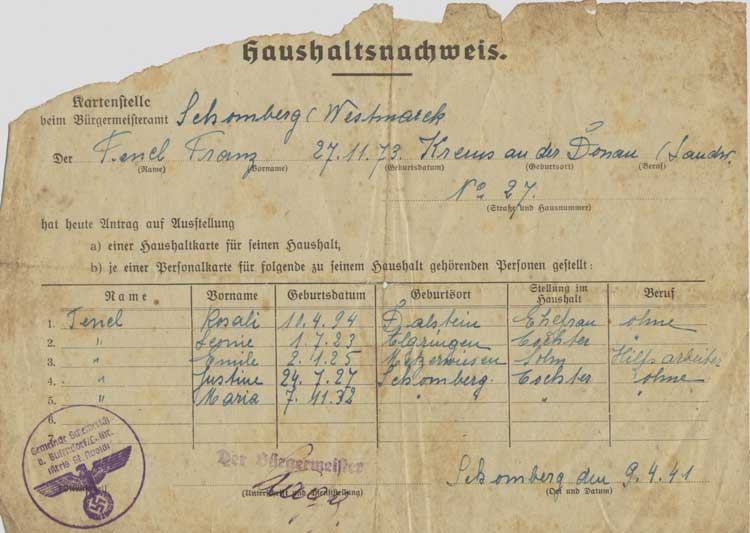 Haushaltsnachweis.
Kartenstelle
beim Bürgermeisteramt Schomberg (Westmark
Der Tenel Franz 27.11.73. Krems an der Donau (Landw.
(Name) (Vorname) (Geburtsdatum) (Geburtsort) (Beruf)
No 27.
(Straße und Hausnummer)
hat heute Antrag auf Ausstellung
a) einer Haushaltkarte für seinen Haushalt,
b) je einer Personalkarte für folgende zu seinem Haushalt gehörenden Personen gestellt:
Name Vorname Geburtsdatum Geburtsort Stellung im Haushalt Beruf
1. Tenel Rosali 10.4.94 Dalstein Ehefrau ohne
2. " Leonie 1.7.23 Elzringen Tochter
3. " Emile 2.1.25 Metzerwiesen Sohn Hilfsarbeiter
4. " Justine 24.7.27 Schomberg Tochter ohne
5. " Maria 7.11.32 " " "
6.
7.
Gemeinde
Kreis St. Avold
Der Bürgermeister
Schomberg den 9.4.41
(Unterschrift und Dienststellung) (Ort und Datum)